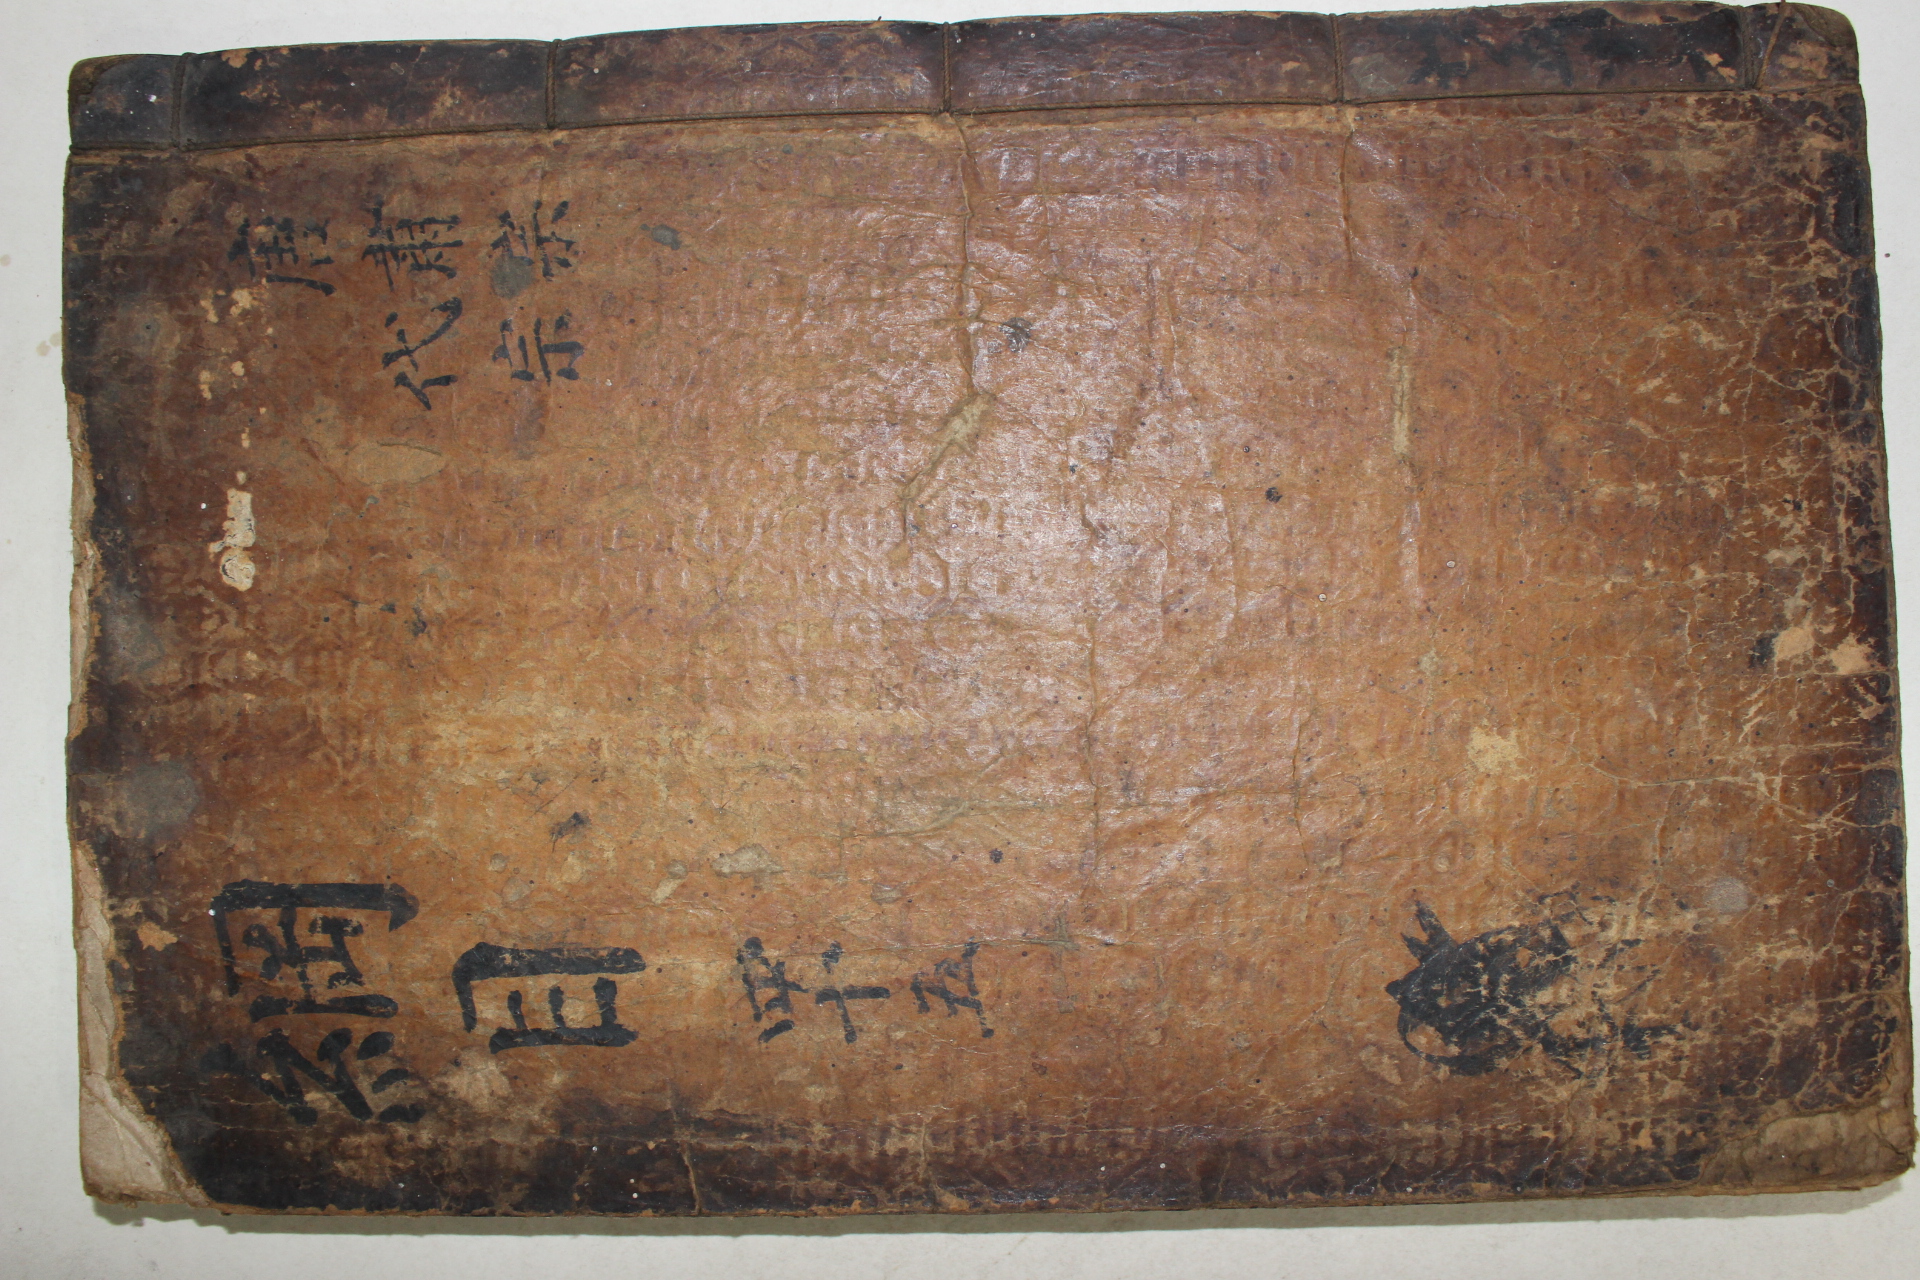 唐
肅宗
代宗
綱目 四十五